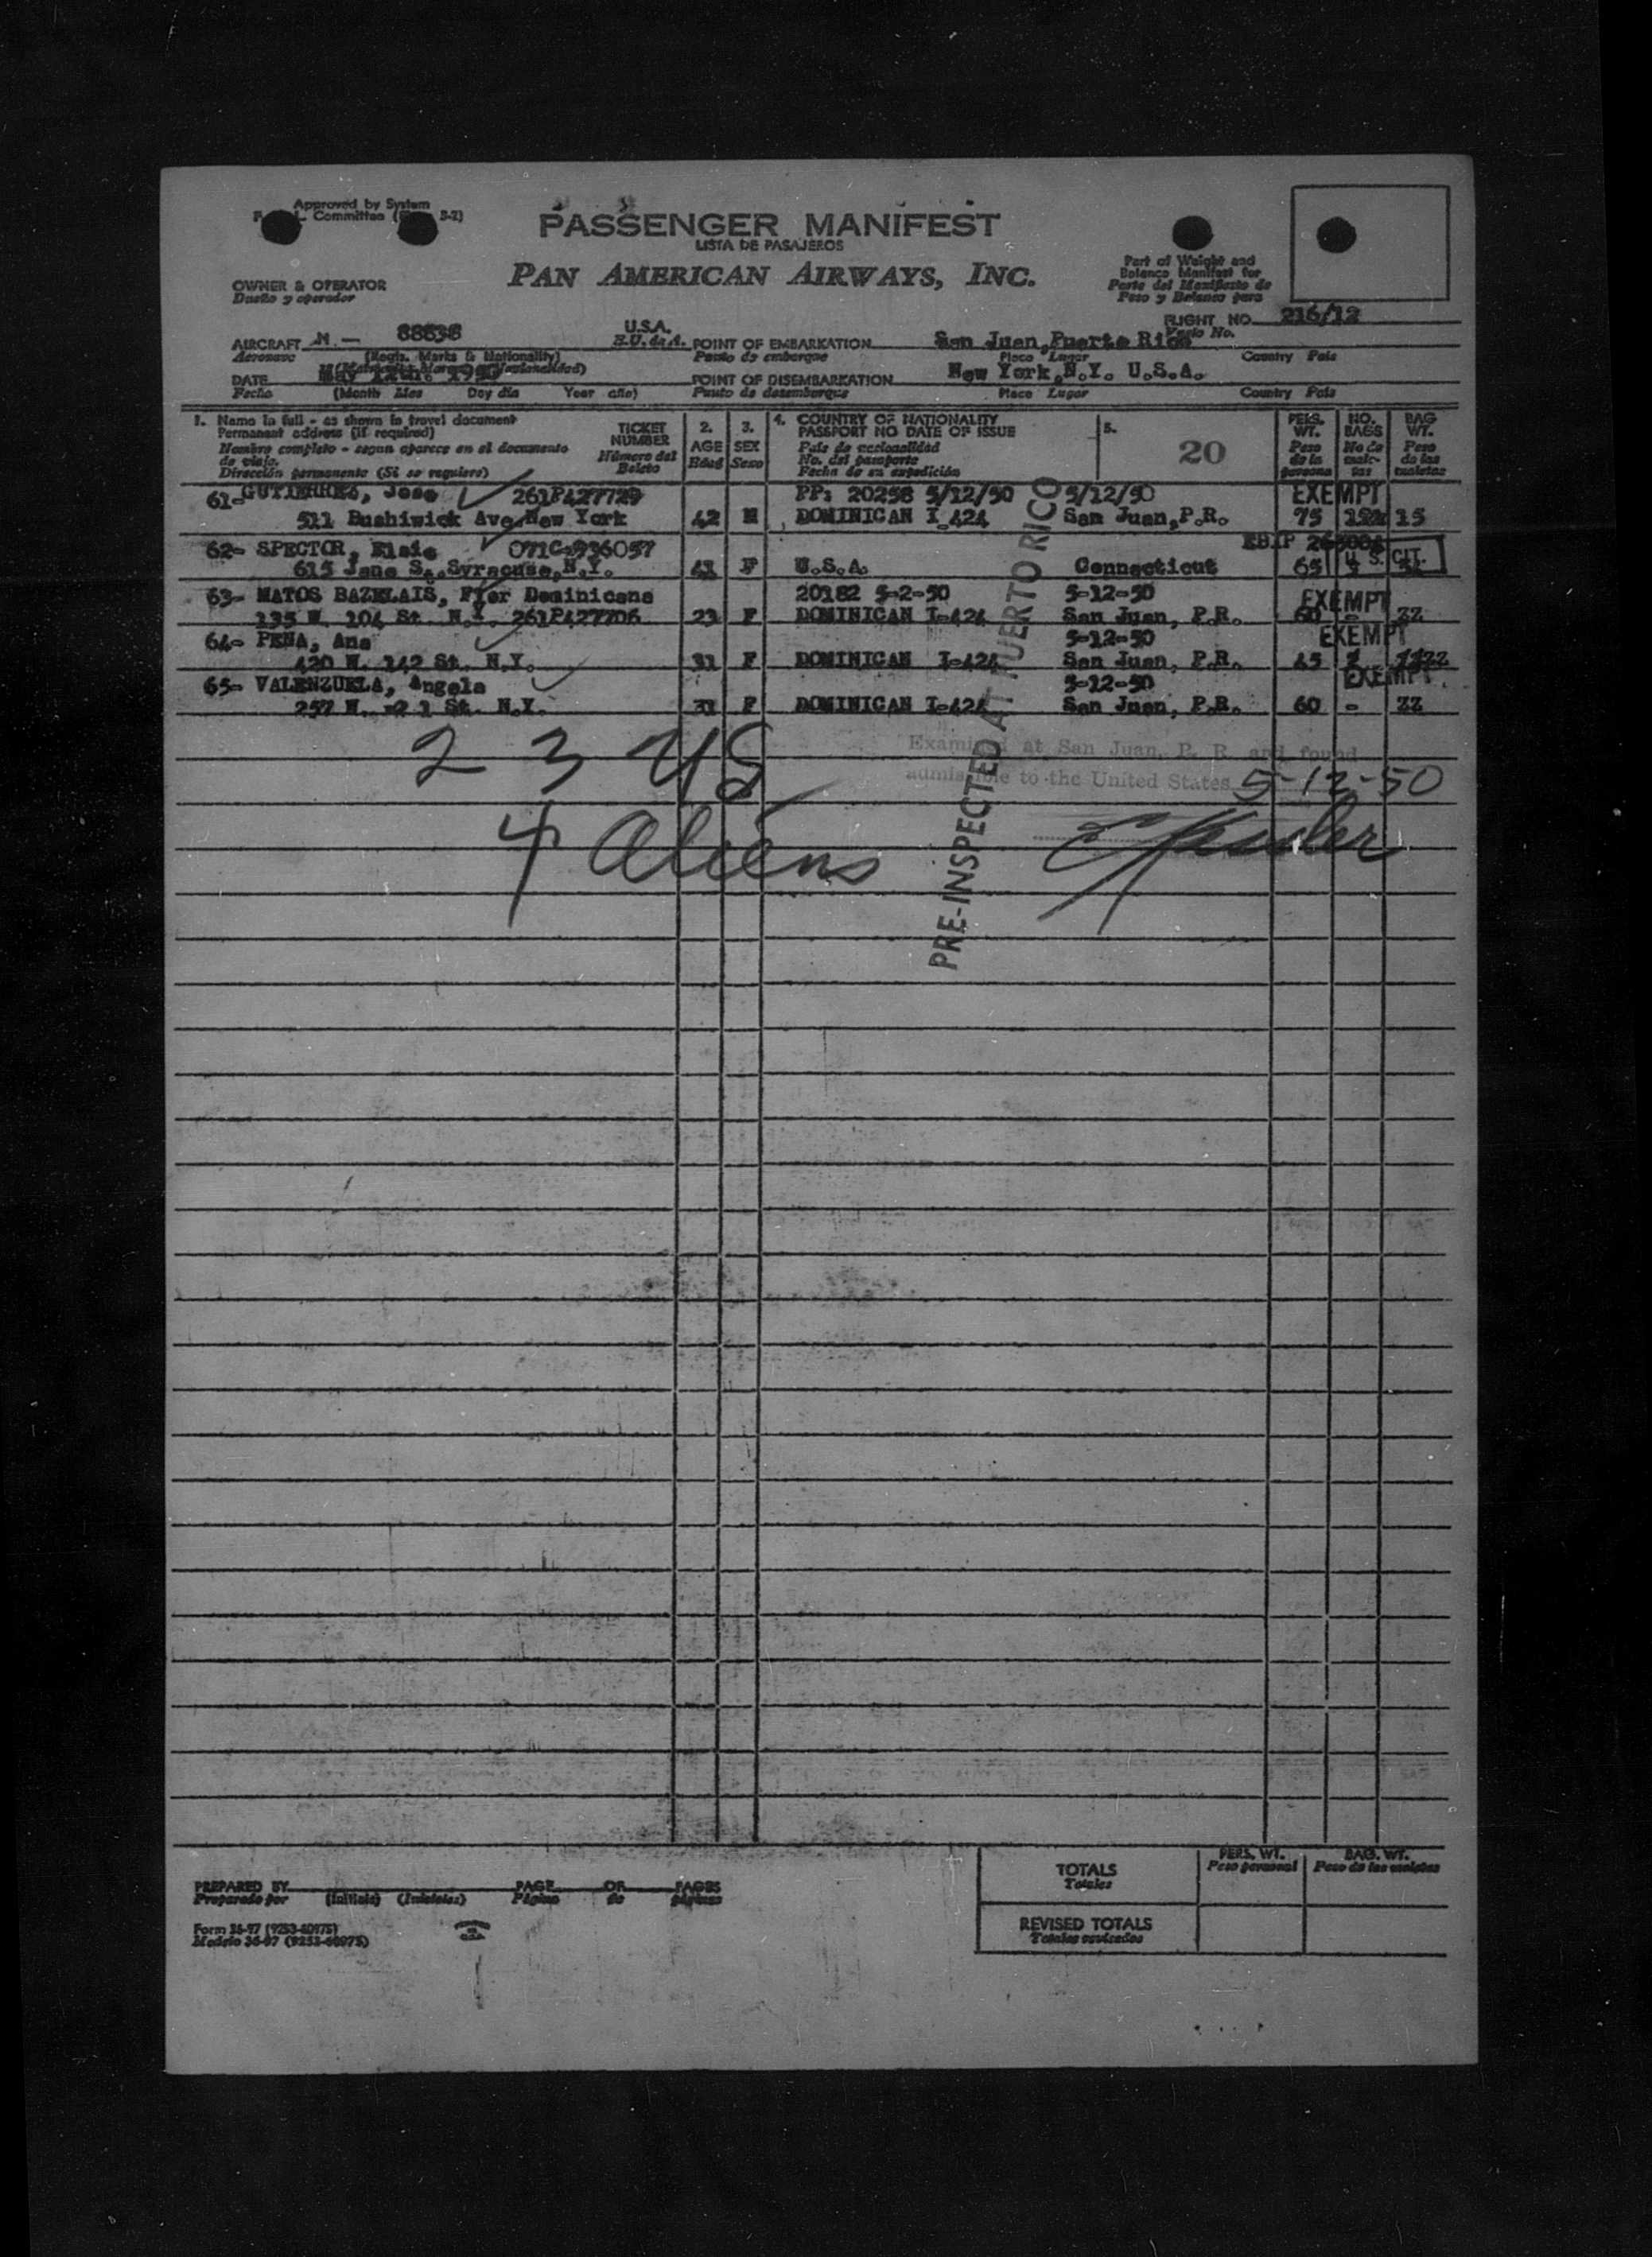 Approved by System
Committee ( 3-2)
PASSENGER MANIFEST
LISTA DE PASAJEROS
PAN AMERICAN AIRWAYS, INC.
Part of Weight and
Balance Manifest for
Parte del Manifiesto de
Peso y Balance para
OWNER & OPERATOR
Dueño y operador
FLIGHT NO. 216/12
Vuelo No.
AIRCRAFT N - 88838 U.S.A. E.U. de A.
Aeronave (Regis. Marks & Nationality)
POINT OF EMBARKATION San Juan, Puerto Rico
Punto de embarque Place Lugar Country País
DATE May 12th. 1950
Fecha (Month Mes Day día Year año)
POINT OF DISEMBARKATION New York, N.Y. U.S.A.
Punto de desembarque Place Lugar Country País
1. Name in full - as shown in travel document
Permanent address (if required)
Nombre completo - segun aparece en el documento
de viaje.
Dirección permanente (Si se requiere)
TICKET
NUMBER
Número del
Boleto
2.
AGE
Edad
3.
SEX
Sexo
4. COUNTRY OF NATIONALITY
PASSPORT NO DATE OF ISSUE
País de nacionalidad
No. del pasaporte
Fecha de su expedición
5.
20
PERS.
WT.
Peso
de la
persona
NO.
BAGS
No de
male-
tas
BAG
WT.
Peso
de las
maletas
61- GUTIERREZ, Jose 261P427729 PP: 20258 5/12/50 5/12/50 EXEMPT
511 Bushiwick Ave, New York 42 M DOMINICAN I 424 San Juan, P.R. 75 15
62- SPECTOR, Elsie 071C-936057
615 Jane S. Syracuse, N.Y. 41 F U.S.A. Connecticut 65 U.S. CIT.
63- MATOS BAZELAIS, Flor Dominicana 20182 5-2-50 5-12-50 EXEMPT
135 W. 104 St. N.Y. 261P427706 23 F DOMINICAN I-424 San Juan, P.R. 60 - ZZ
64- PENA, Ana 5-12-50 EXEMPT
420 W. 142 St. N.Y. 31 F DOMINICAN I-424 San Juan, P.R. 45
65- VALENZUELA, Angela 5-12-50 EXEMPT
257 W. 21 St. N.Y. 31 F DOMINICAN I-424 San Juan, P.R. 60 - ZZ
PRE-INSPECTED AT PUERTO RICO
2 3 US
4 Aliens
Examined at San Juan, P. R. and found
admissible to the United States 5-12-50
TOTALS
Totales
PERS. WT.
Peso personal
BAG. WT.
Peso de las maletas
REVISED TOTALS
Totales revisados
PREPARED BY PAGE OF PAGES
Preparado por (Initials) (Iniciales) Página de páginas
Form 36-97 (9253-60975)
Modelo 36-97 (9253-60975)